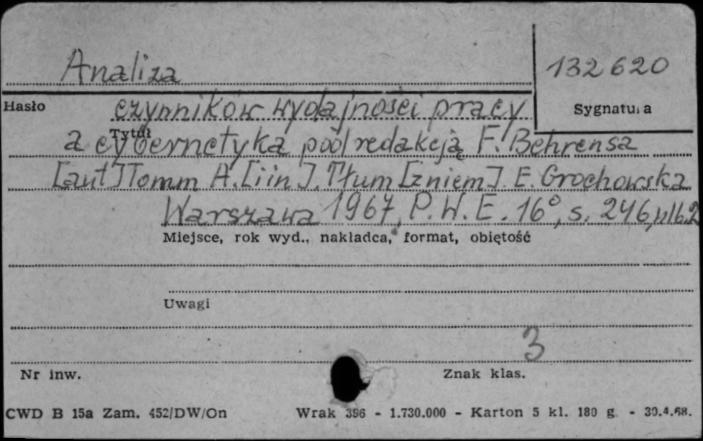 Analiza 132620
Hasło czynników wydajności pracy Sygnatura
Tytuł
a cybernetyka pod redakcją F. Behrensa
[aut] Tomm A. [i in.]. Tłum [z niem]. E. Grochowska
Warszawa 1967, P.W.E. 16°, s. 246,
Miejsce, rok wyd., nakładca, format, objętość
Uwagi
3
Nr inw. Znak klas.
CWD B 15a Zam. 452/DW/On Wrak 396 - 1.730.000 - Karton 5 kl. 180 g - 30.4.68.